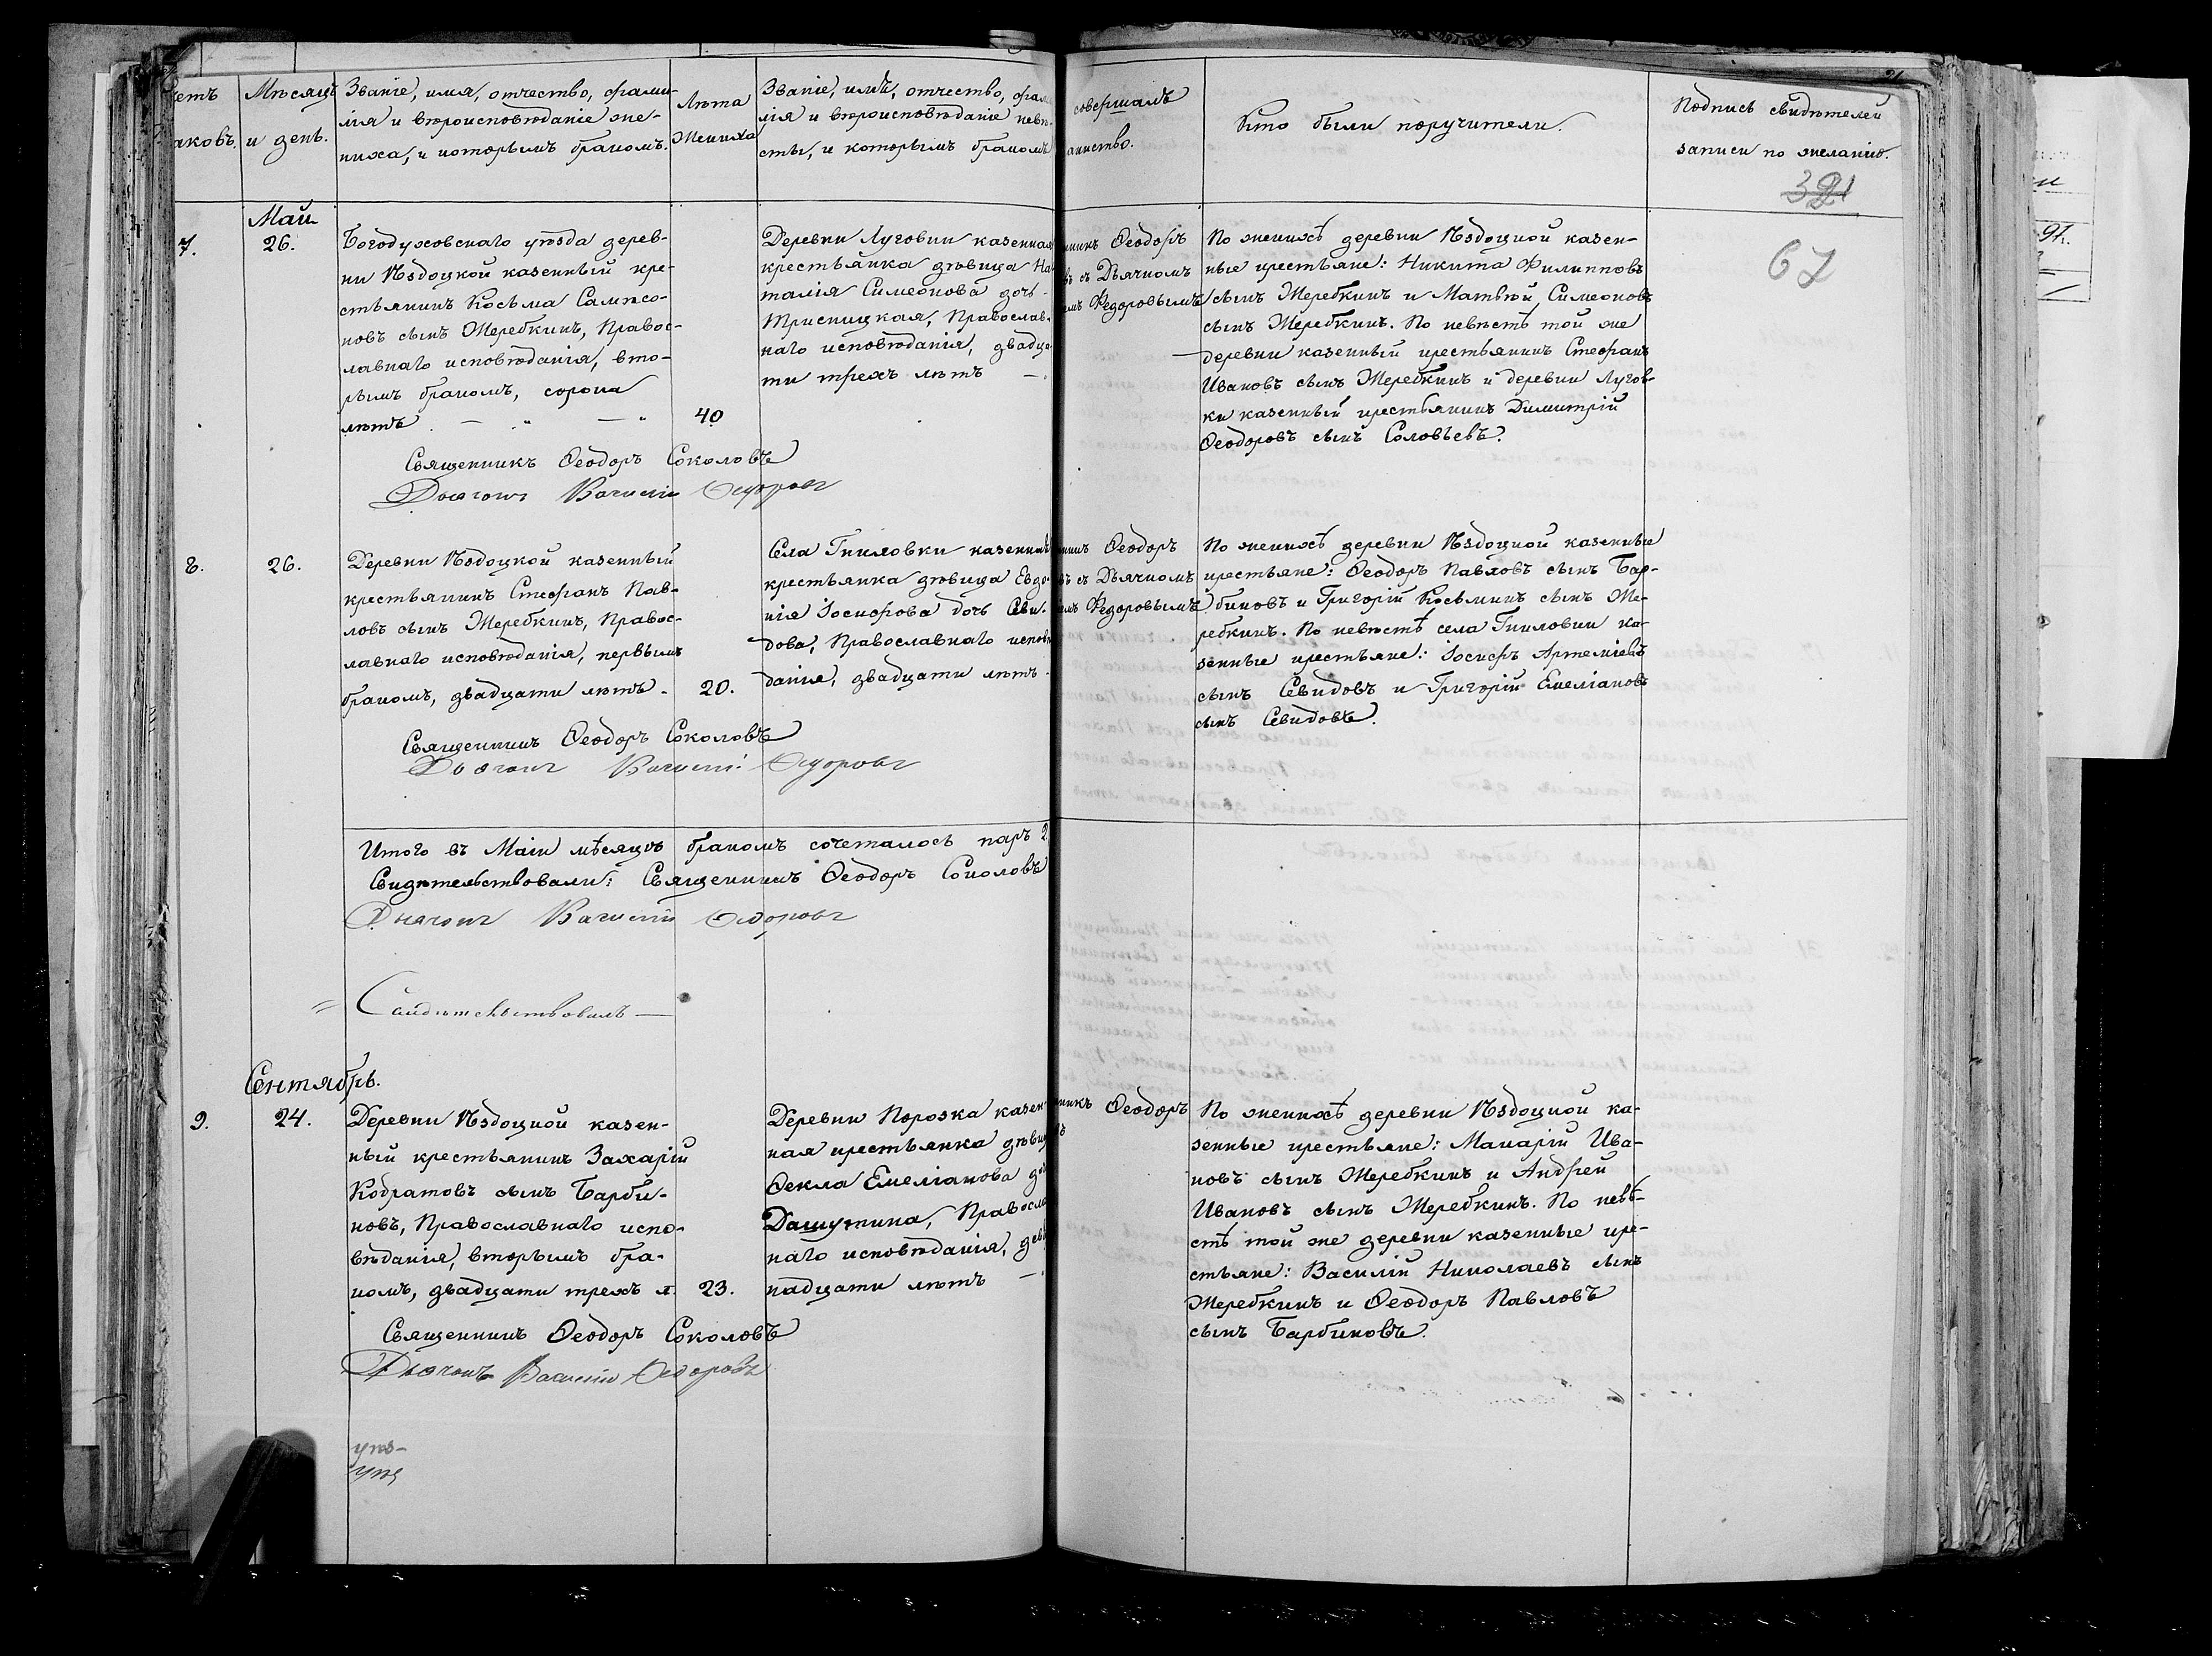 четъ
аковъ.
Мѣсяцъ
и день.
Званіе, имя, отчество, фами-
лія и вѣроисповѣданіе же-
ниха, и которымъ бракомъ.
Лѣта
Жениха
Званіе, имя, отчество, фами
лія и вѣроисповѣданіе невѣ-
сты, и которымъ бракомъ
совершалъ
таинство.
Кто были поручители.
Подпись свидѣтелей
записи по желанію.
67
Маій
7.
26.
Богодуховскаго уѣзда дерев-
ни Ѣздоцкой казенный кре-
стьянинъ Косьма Сампсо-
новъ сынъ Жеребкинъ, Правос-
лавнаго исповѣданія, вто-
рымъ бракомъ, сорока
лѣтъ
40
Деревни Луговки казенная
крестьянка дѣвица На-
талія Симеонова дочь
Трисницкая, Православ-
наго исповѣданія, двадца-
ти трехъ лѣтъ
никъ Ѳеодоръ
въ съ Дьячкомъ
емъ Федоровымъ
По женихѣ деревни Ѣздоцкой казен-
ные крестьяне: Никита Филипповъ
сынъ Жеребкинъ и Матвѣй Симеоновъ
сынъ Жеребкинъ. По невѣстѣ той же
деревни казенный крестьянинъ Стефанъ
Ивановъ сынъ Жеребкинъ и деревни Лугов-
ки казенный крестьянинъ Димитрій
Ѳеодоровъ сынъ Соловьевъ.
Священникъ Ѳеодоръ Соколовъ
Дьячокъ Василій Ѳедоровъ
8.
26.
Деревни Ѣздоцкой казенный
крестьянинъ Стефанъ Пав-
ловъ сынъ Жеребкинъ, Правос-
лавнаго исповѣданія, первымъ
бракомъ, двадцати лѣтъ.
20.
Села Гниловки казенная
крестьянка дѣвица Евдо-
кія Іосифова дочь Севи-
дова, Православнаго исповѣ
данія, двадцати лѣтъ.
никъ Ѳеодоръ
въ съ Дьячкомъ
емъ Федоровымъ
По женихѣ деревни Ѣздоцкой казенные
крестьяне: Ѳеодоръ Павловъ сынъ Бар-
биновъ и Григорій Косьминъ сынъ Же-
ребкинъ. По невѣстѣ села Гниловки ка-
зенные крестьяне: Іосифъ Артеміевъ
сынъ Севидовъ и Григорій Емеліановъ
сынъ Севидовъ.
Священникъ Ѳеодоръ Соколовъ
Дьячокъ Василій Ѳедоровъ
Итого въ Маіи мѣсяцѣ бракомъ сочеталось паръ 2.
Свидѣтельствовали: Священникъ Ѳеодоръ Соколовъ
Дьячокъ Василій Ѳедоровъ
Свидѣтельствовалъ
Сентябрь.
9.
24.
Деревни Ѣздоцкой казен-
ный крестьянинъ Захарій
Кодратовъ сынъ Барби-
новъ, Православнаго испо-
вѣданія, вторымъ бра-
комъ, двадцати трехъ л.
23.
Деревни Порозка казен-
ная крестьянка дѣвица
Ѳекла Емеліанова до
Дашутина, Правосла
наго исповѣданія, девя
надцати лѣтъ
никъ Ѳеодоръ
въ
По женихѣ деревни Ѣздоцкой ка-
зенные крестьяне: Макарій Ива-
новъ сынъ Жеребкинъ и Андрей
Ивановъ сынъ Жеребкинъ. По невѣ-
стѣ той же деревни казенные кре-
стьяне: Василій Николаевъ сынъ
Жеребкинъ и Ѳеодоръ Павловъ
сынъ Барбиновъ.
Священникъ Ѳеодоръ Соколовъ
Дьячокъ Василій Ѳедоровъ